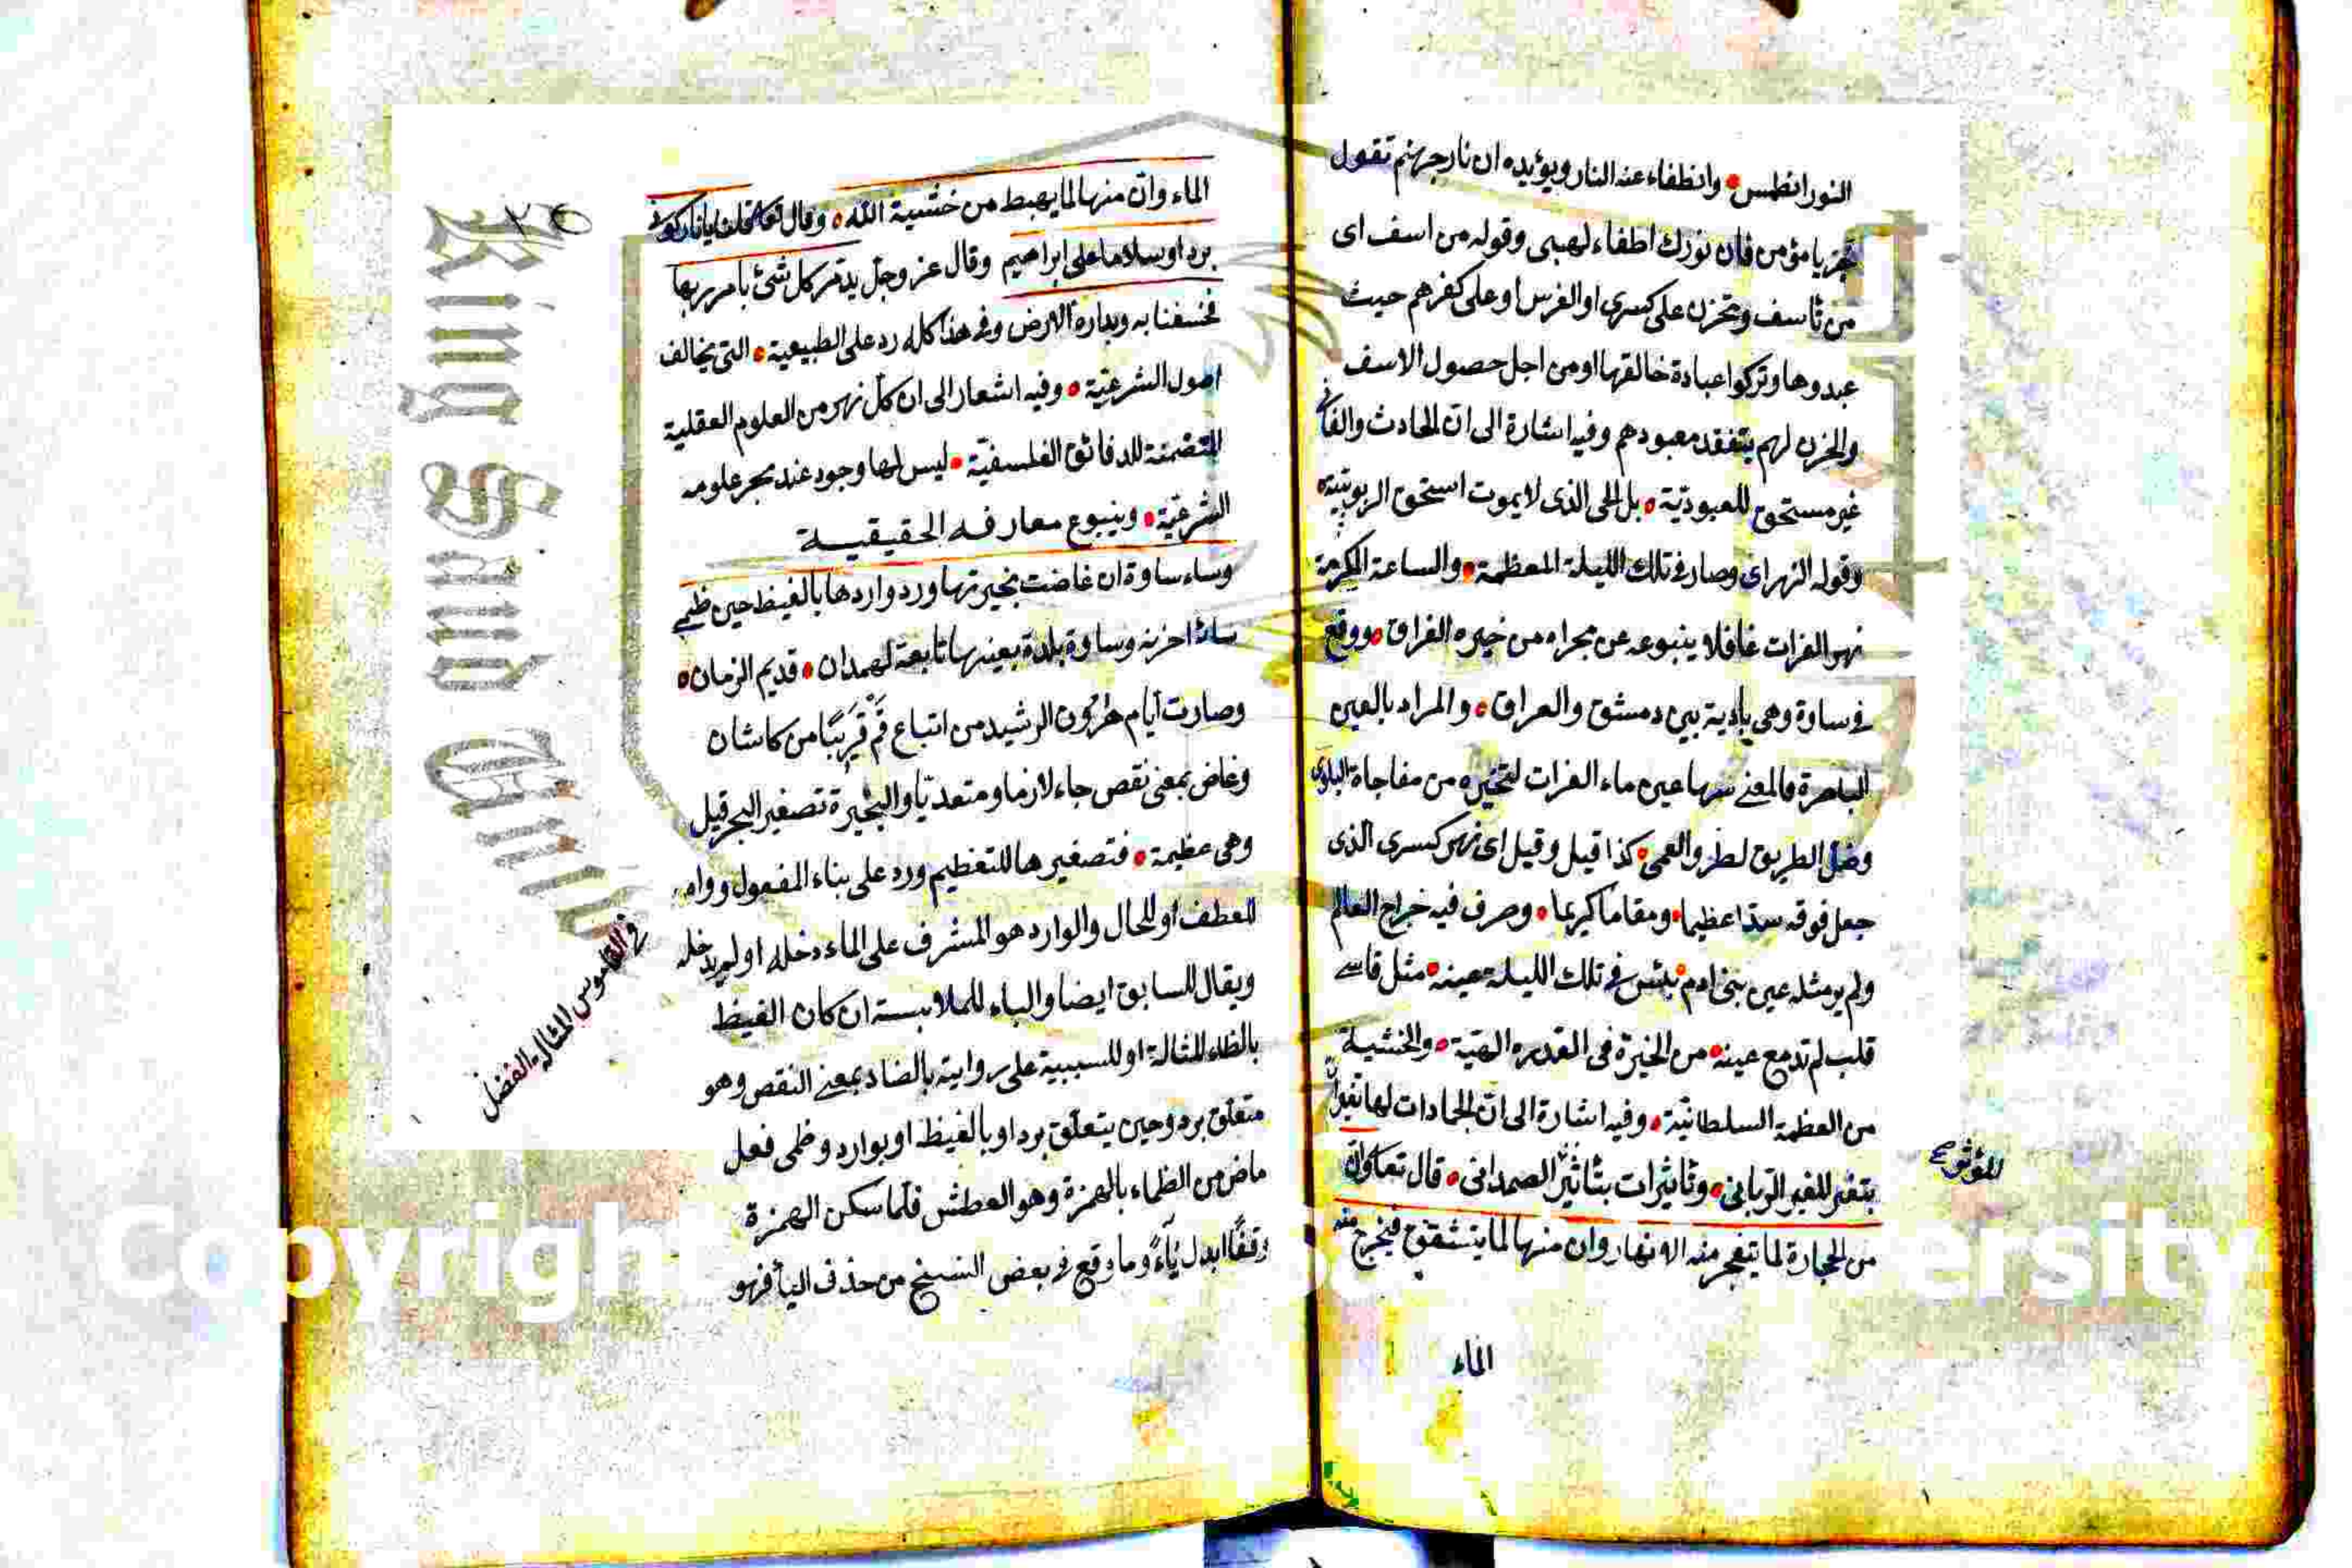 النور انطمس وانطفاء عنه النار ويؤيده ان نار جهنم تقول
جز يا مؤمن فان نورك اطفاء لهبي وقوله من اسف اى
من تأسف وتحزن على كسرى او الفرس او على كفرهم حيث
عبدوها وتركوا عبادة خالقها او من اجل حصول الاسف
والحزن لهم بتفقد معبودهم وفيه اشارة الى ان الحادث والفانى
غير مستحق للعبودية بل الحى الذى لا يموت استحق الربوبية
وقوله النهر اى وصار فى تلك الليلة المعظمة والساعة المكرمة
نهر الفرات غافلا ينبوعه عن مجراه من خيره الفراق ووقع
فى ساوة وهى بادية بين دمشق والعراق والمراد بالعين
الباصرة فالمعنى سها عين ماء الفرات لتحيره من مفاجاة البلوى
وضل الطريق لطرو العمى كذا قيل وقيل اى نهر كسرى الذى
جعل فوقه سدا عظيما ومقاما كريما وصرف فيه خراج العالم
ولم ير مثله عين بنى ادم يئس فى تلك الليلة عينه مثل قاسى
قلب لم تدمع عينه من الخيرة فى القدره الهية والخشية
من العظمة السلطانية وفيه اشارة الى ان الجمادات لها تغيرات
بتغير للغير الربانى وتأثيرات بتأثير الصمدانى قال تعالى وان
من الحجارة لما يتفجر منه الانهار وان منها لما يتشقق فيخرج منه
للمؤثر صح
الماء
٢٥
الماء وان منها لما يهبط من خشية الله وقال تعالى قلنا يا نار كونى
بردا وسلاما على ابراهيم وقال عز وجل يدمر كل شئ بامر ربها
فخسفنا به وبداره الارض وفى هذا كله رد على الطبيعية التى يخالف
اصول الشرعية وفيه اشعار الى ان كل نهر من العلوم العقلية
المتضمنة للدقائق الفلسفية ليس لها وجود عند بحر علومه
الشرعية وينبوع معارفه الحقيقية
وساء ساوة ان غاضت بحيرتها ورد واردها بالغيظ حين ظمى
ساء احزنه وساوة بلدة بعينها تابعة لهمدان قديم الزمان
وصارت ايام هرون الرشيد من اتباع قم قريبا من كاشان
وغاض بمعنى نقص جاء لازما ومتعديا والبحيرة تصغير البحر قيل
وهى عظيمة فتصغيرها للتعظيم ورد على بناء المفعول وواوه
للعطف او للحال والوارد هو المشرف على الماء دخله او لم يدخله
ويقال للسابق ايضا والباء للملابسة ان كان الغيظ
بالظاء المثالة او للسببية على رواية بالضاد بمعنى النقص وهو
متعلق برد وحين يتعلق برد او بالغيظ او بوارد وظمى فعل
ماض من الظماء بالهمزة وهو العطش فلما سكن الهمزة
وقفا ابدل ياء وما وقع فى بعض النسخ من حذف الياء فهو
فى القاموس المثالة الفضل
King Saud Univ
Copyrigh
ersity